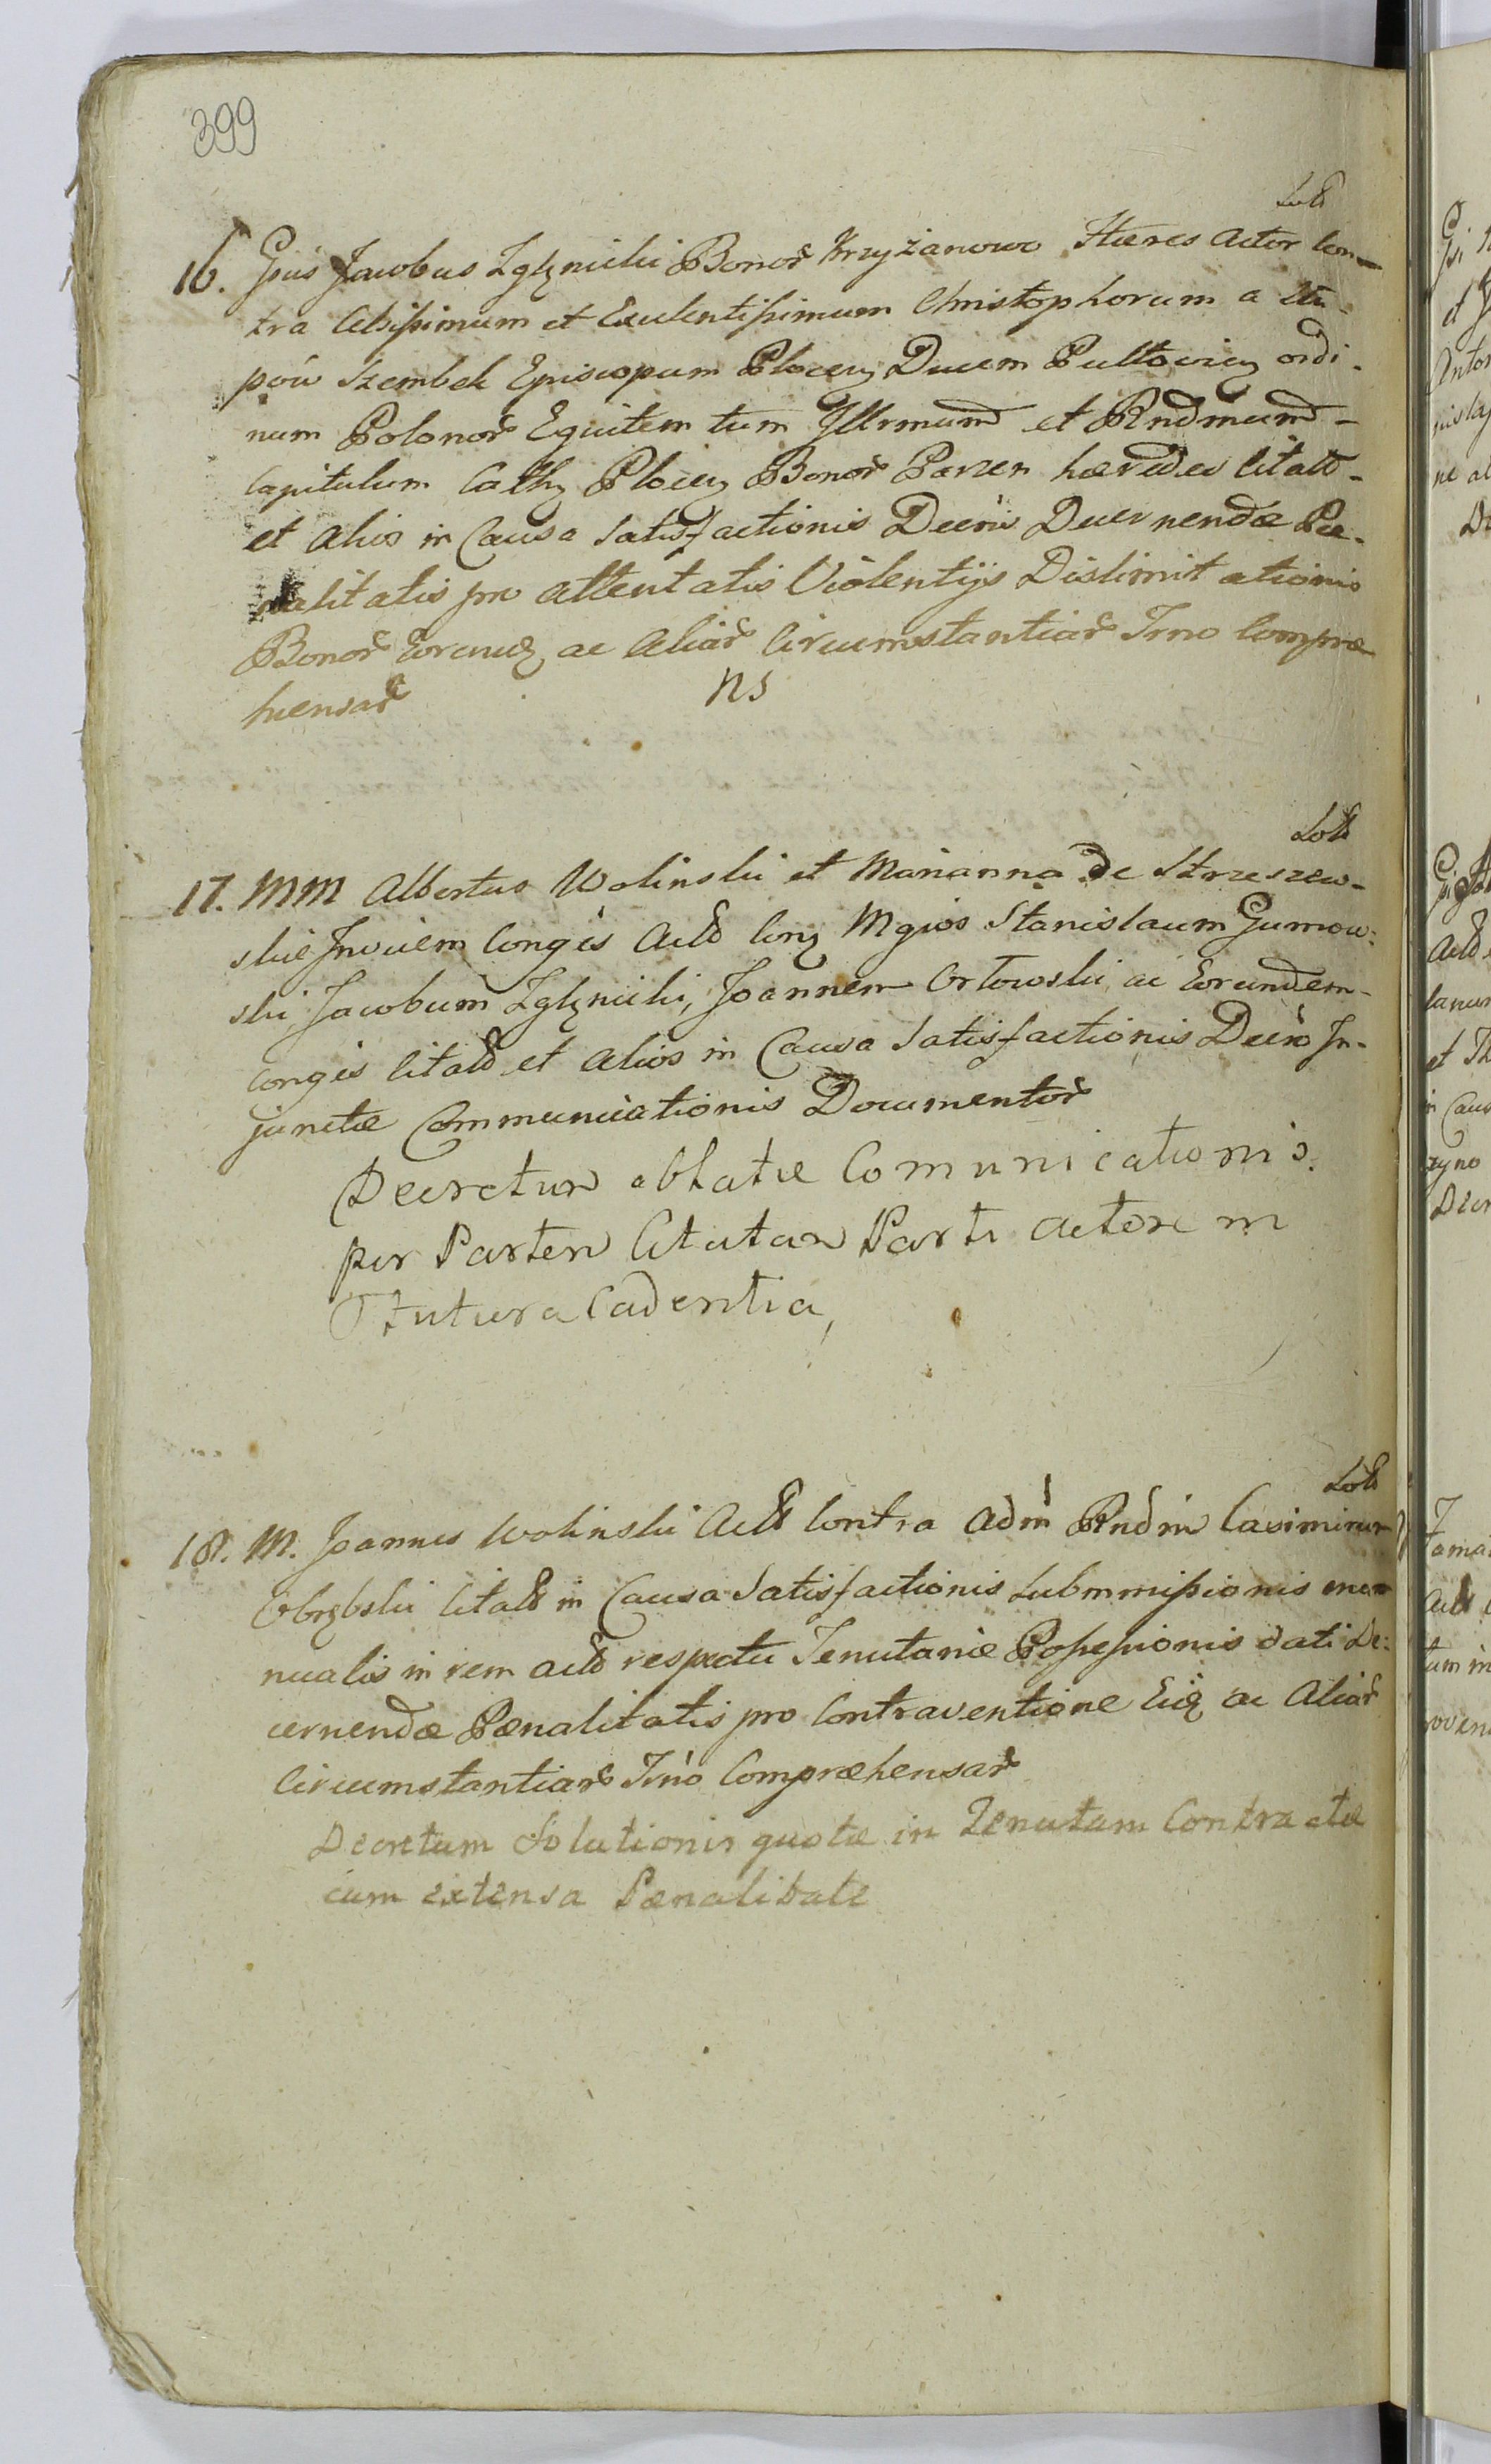 399
16. Gsus Jacobus Zglznicki Bonor Krzyżanowo Hæres Actor Con-
tra Celsissimum et Excellentissimum Christophorum a
Szembek Episcopum Plocen Ducem Pultovien ordi-
num Polonor Equitem tum Illrmum et Rndmum -
Capitulum Cathz Plocen Bonor Parzen hæredes Citatt -
et alios in Causa Satisfactionis Decrii Decernendæ Pæ-
nalitatis pro attentatis Violentijs Dislimitationis
Bonor Eorundz ac Aliar Circumstantiar Trno Compræ
hensar ns
Lotb
17. MM Albertus Wolinski et Marianna de Strzeszew-
skie Invicem Conges Actb Conz Mgios Stanislaum Gumow-
ski, Jacobum Zglznicki, Joannem Orłowski ac Eorundem -
Conges Citatb et alios in Causa Satisfactionis Decro In-
junctæ Communicationis Documentor
Decretum oblatæ Comunicationis
per Partem Citatam Parti Actore in
Futura Cadentia,
Lotb
18. M. Joannes Wolinski Actb Contra Adm Rndm Casimirum
Obrzbski Citatb in Causa Satisfactionis Submmissionis
nualis in rem actb respectu Tenutariæ Possessionis dati De-
cernendæ Pænalitatis pro Contraventione Eidz ac Aliar
Circumstantiar Trno Compræhensar
Decretum Solutionis quotæ in Tenutam Contractæ
cum extensa Pænalitate